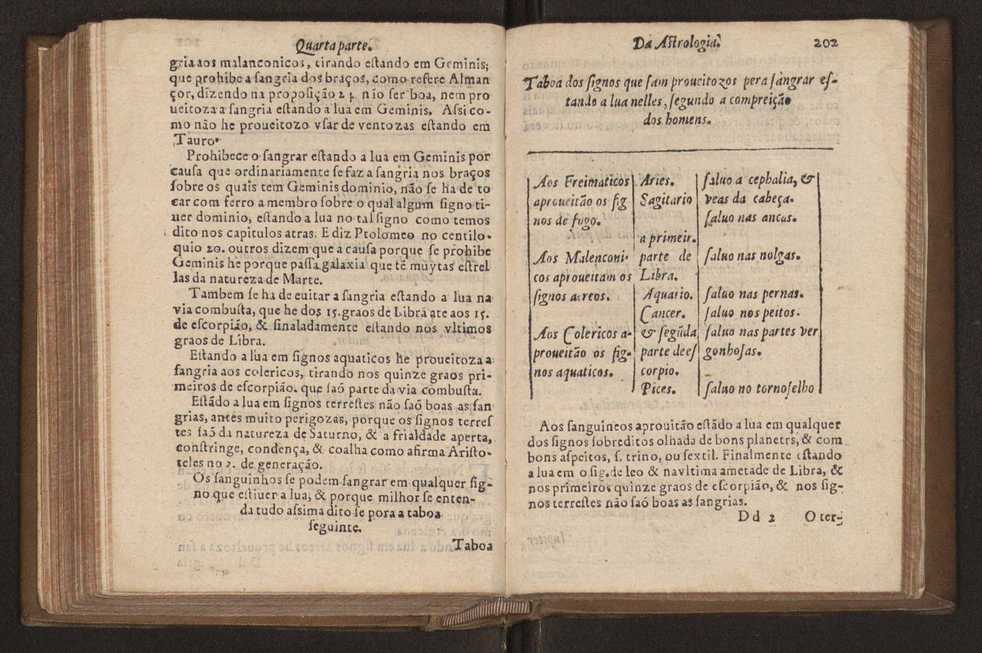 Quarta parte.
gria aos malanconicos, tirando estando em Geminis;
que prohibe a sangria dos braços, como refere Alman
çor, dizendo na proposição 2 não ser boa, nem pro
ueitoza a sangria estando a lua em Geminis. Assi co-
mo não he proueitozo vsar de ventozas estando em
Tauro.
Prohibece o sangrar estando a lua em Geminis por
causa que ordinariamente se faz a sangria nos braços
sobre os quais tem Geminis dominio, não se ha de to
car com ferro a membro sobre o qual algum signo ti-
uer dominio, estando a lua no tal signo como temos
dito nos capitulos atras. E diz Ptolomeo no centilo-
quio 20. outros dizem que a causa porque se prohibe
Geminis he porque passa galaxia que tẽ muytas estrel
las da natureza de Marte.
Tambem se ha de euitar a sangria estando a lua na
via combusta, que he dos 15. graos de Libra ate aos 15.
de escorpião, & sinaladamente estando nos vltimos
graos de Libra.
Estando a lua em signos aquaticos he proueitoza a
sangria aos colericos, tirando nos quinze graos pri-
meiros de escorpião. que saõ parte da via combusta.
Estãdo a lua em signos terrestes não saõ boas as san
grias, antes muito perigozas, porque os signos terres
tes saõ da natureza de Saturno, & a frialdade aperta,
constringe, condença, & coalha como afirma Aristo-
teles no 2. de generação.
Os sanguinhos se podem sangrar em qualquer sig-
no que estiuer a lua, & porque milhor se enten-
da tudo assima dito se pora a taboa
seguinte.
Taboa
Da Astrologia. 202
Taboa dos signos que sam proueitozos pera sangrar es-
tando a lua nelles, segundo a compreição
dos homens.
Aos Freimaticos Aries. saluo a cephalia, &
aproueitão os sig Sagitario veas da cabeça.
nos de fogo. saluo nas ancas.
a primeir.
Aos Malenconi- parte de saluo nas nolgas.
cos aproueitam os Libra.
signos aereos. Aquario. saluo nas pernas.
Cancer. saluo nos peitos.
Aos Colericos a- & segũda saluo nas partes ver
proueitão os sig- parte de es gonhosas.
nos aquaticos. corpio.
Pices. saluo no tornoselho
Aos sanguineos aprouitão estãdo a lua em qualquer
dos signos sobreditos olhada de bons planetrs, & com
bons aspeitos, s. trino, ou sextil. Finalmente estando
a lua em o sig. de leo & navltima ametade de Libra, &
nos primeiros quinze graos de escorpião, & nos sig-
nos terrestes não saõ boas as sangrias.
Dd 2 O ter-